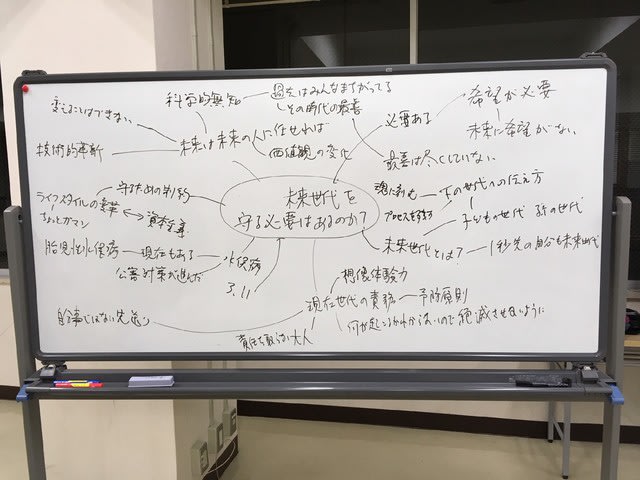 科学的無知
過去はみんなまちがってる
その時代の最善
変えることはできない
技術的革新
未来は未来の人に任せれば
価値観の変化
必要ある
希望が必要
未来に希望がない
最善は尽くしていない
未来世代を
守る必要はあるのか？
守るための制約
ライフスタイルの変革
ちょっとガマン
資本主義
胎児性水俣病
現在もある
公害対策が進んだ
水俣病
3.11
下の世代への伝え方
プロセスを
子どもの世代 孫の世代
未来世代とは？
1秒先の自分も未来世代
想像体験力
現在世代の責務
予防原則
何が起こるかわからないので絶滅させないように
責任を取らない大人
自分事ではない先送り